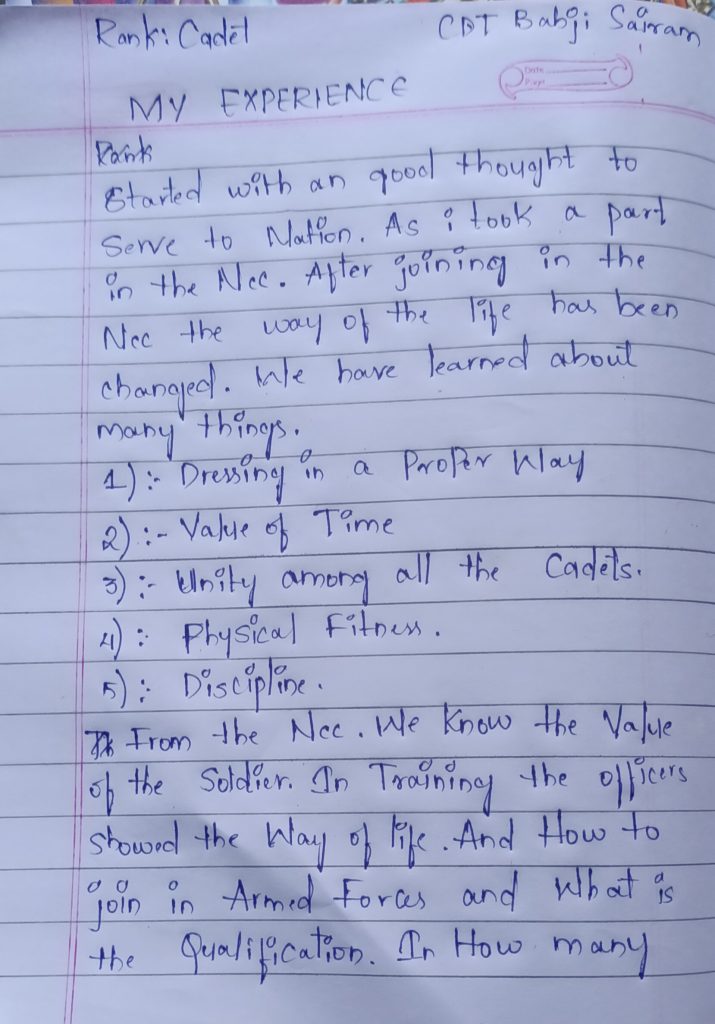 Rank: Cadet
CDT Babji Sairam
MY EXPERIENCE
Rank
Started with an good thought to
Serve to Nation. As i took a part
in the Ncc. After joining in the
Ncc the way of the life has been
changed. We have learned about
many things.
1) :- Dressing in a Proper Way
2) :- Value of Time
3) :- Unity among all the Cadets.
4) : Physical Fitness.
5) : Discipline.
From the Ncc. We Know the Value
of the Soldier. In Training the officers
showed the Way of life. And How to
join in Armed Forces and What is
the Qualification. In How many